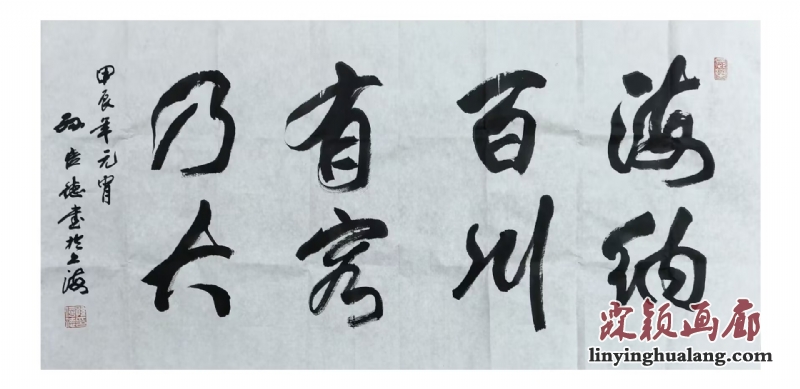 海纳
百川
有容
乃大
甲辰年元宵
孙宏德书于上海
霖颖画廊
linyinghualang.com